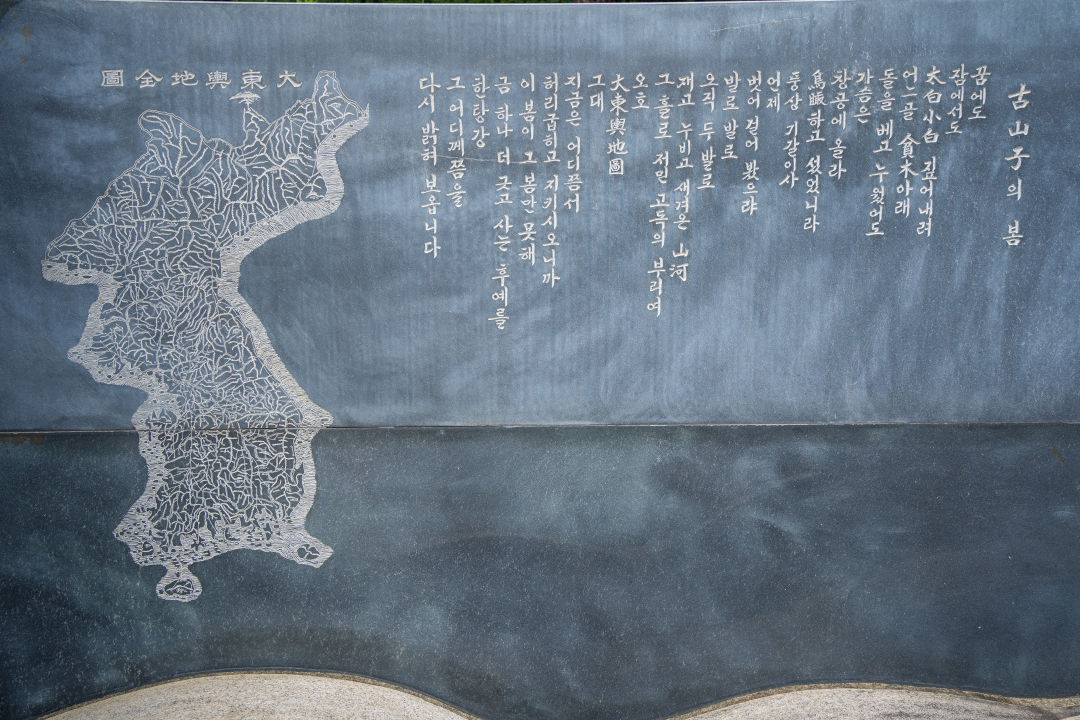 古山子의 봄
꿈에도
잠에서도
太白小白 짚어내려
언 골 貧木아래
돌을 베고 누웠어도
가슴은
창공에 올라
鳥瞰하고 섰었니라
풍산 기갈이사
언제
벗어 걸어 봤으랴
발로 발로
오직 두 발로
재고 누비고 새겨온 山河
그 홀로 저민 고독의 부리여
오호
大東輿地圖
그대
지금은 어디쯤서
허리굽히고 지키시오니까
이 봄이 그 봄만 못해
금 하나 더 긋고 사는 후예를
한탄강
그 어디께쯤을
다시 밝혀 보옵니다
大東輿地全圖